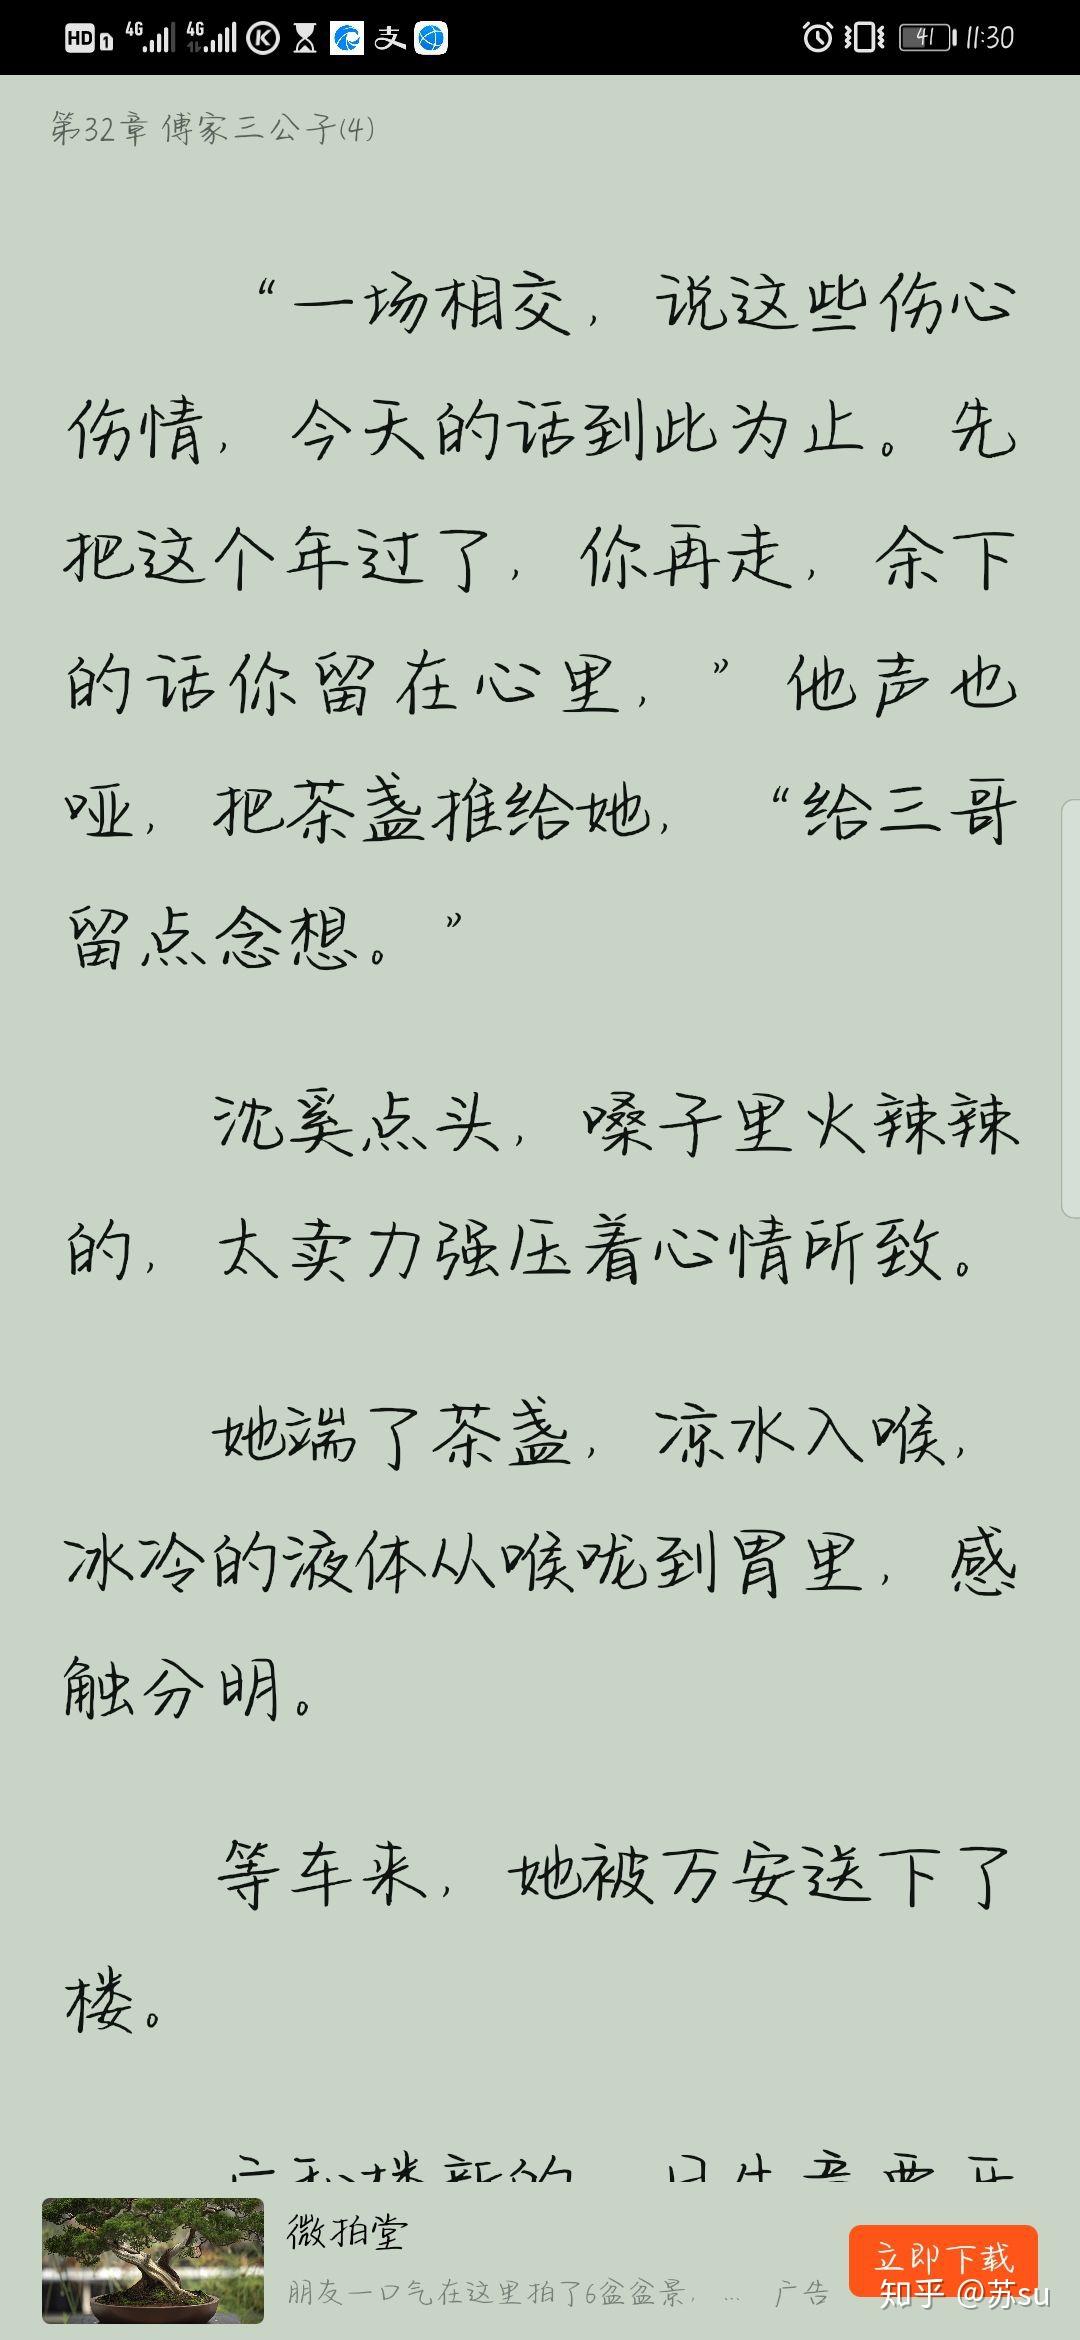 HD 1 4G 4G K 支 41 11:30
第32章 傅家三公子(4)
“一场相交，说这些伤心
伤情，今天的话到此为止。先
把这个年过了，你再走，余下
的话你留在心里，”他声也
哑，把茶盏推给她，“给三哥
留点念想。”
沈奚点头，嗓子里火辣辣
的，太卖力强压着心情所致。
她端了茶盏，凉水入喉，
冰冷的液体从喉咙到胃里，感
触分明。
等车来，她被万安送下了
楼。
微拍堂
朋友一口气在这里拍了6盆盆景，... 广告
立即下载
知乎 @苏su